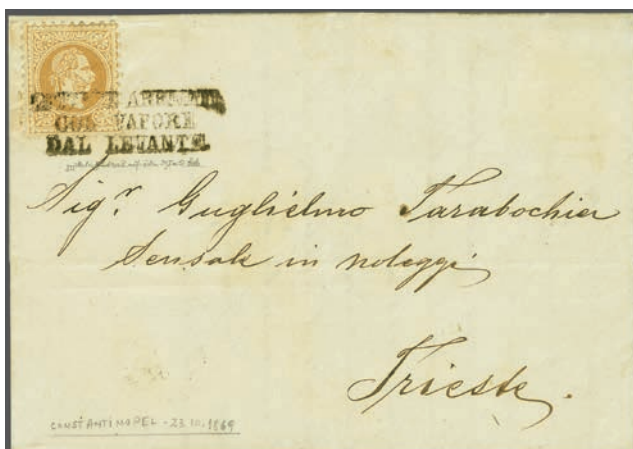 COL VAPORE
DAL LEVANTE.
Sigr. Guglielmo Tarabochia
Sensale in noleggi
Trieste.
CONSTANTINOPEL - 23.10.1869